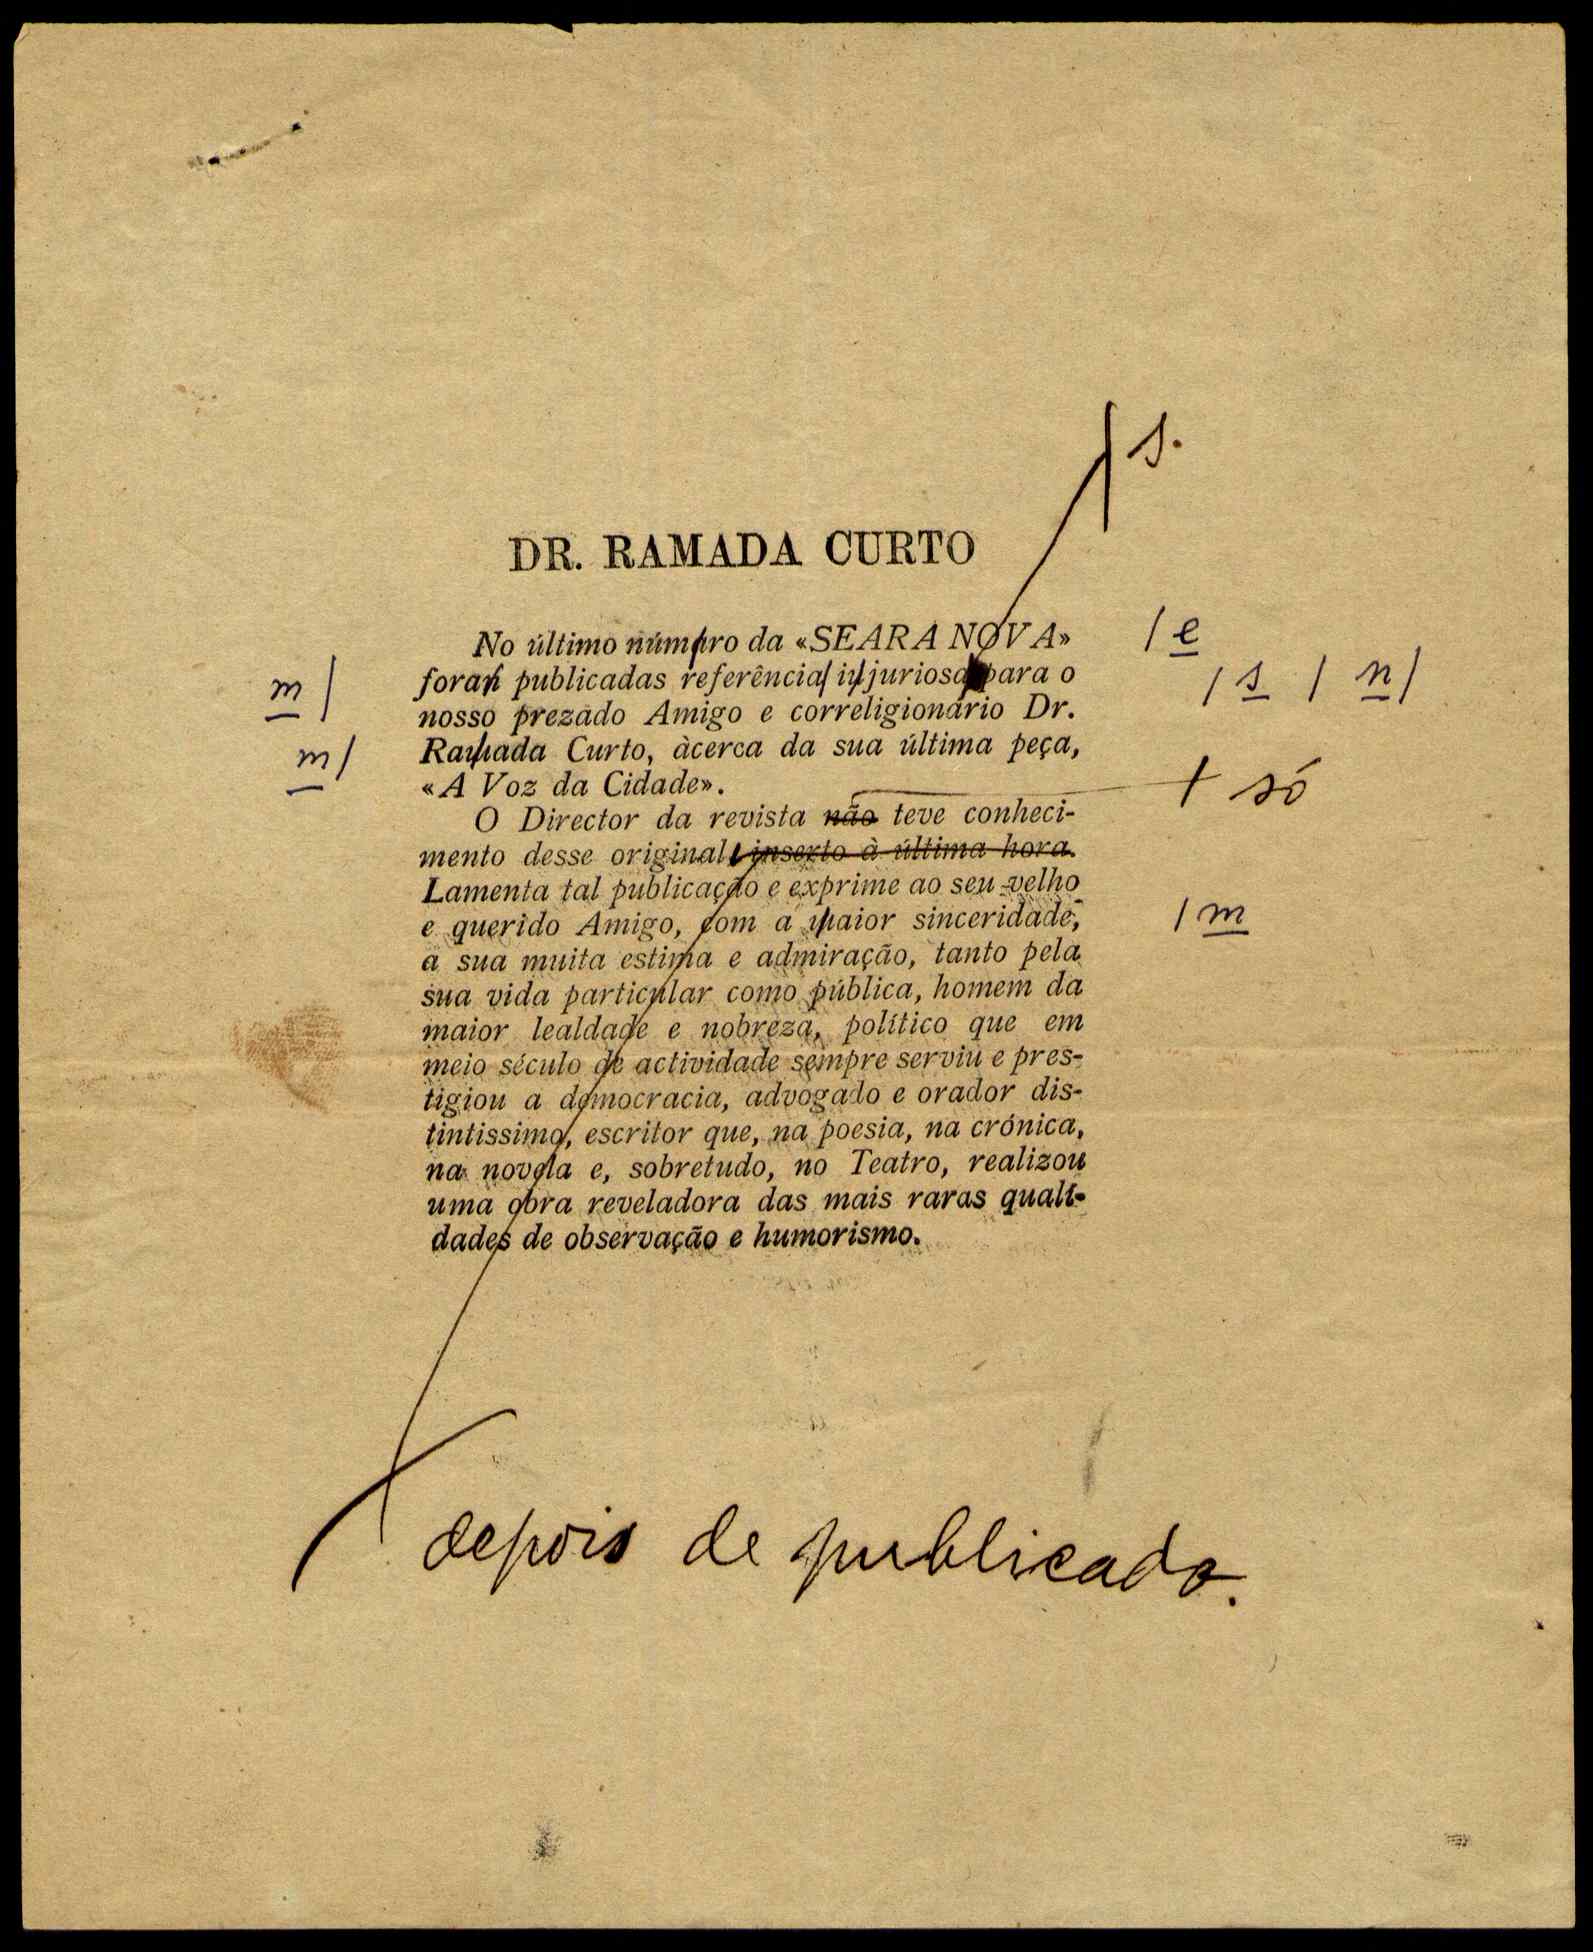 s.
DR. RAMADA CURTO
No último número da «SEARA NOVA» / e
m / foram publicadas referência injuriosas para o / s / n /
nosso prezado Amigo e correligionário Dr.
m / Ramada Curto, àcerca da sua última peça,
«A Voz da Cidade». + só
O Director da revista não teve conheci-
mento desse original, inserto à última hora.
Lamenta tal publicação e exprime ao seu velho
e querido Amigo, com a maior sinceridade, / m
a sua muita estima e admiração, tanto pela
sua vida particular como pública, homem da
maior lealdade e nobreza, político que em
meio século de actividade sempre serviu e pres-
tigiou a democracia, advogado e orador dis-
tintissimo, escritor que, na poesia, na crónica,
na novela e, sobretudo, no Teatro, realizou
uma obra reveladora das mais raras quali-
dades de observação e humorismo.
depois de publicado.